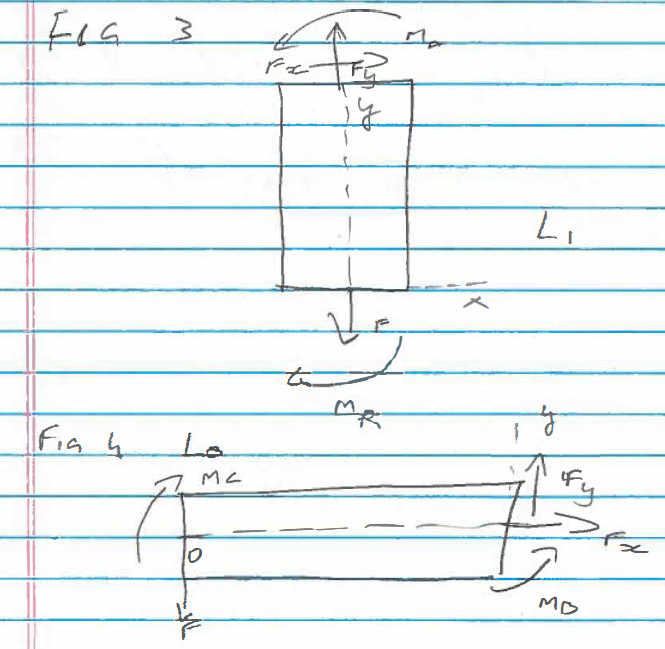 FIG 3
Fx Fy
y
L1
x
F
MR
Fig 4 L0
MC
y
Fy
O
Fx
F
MD